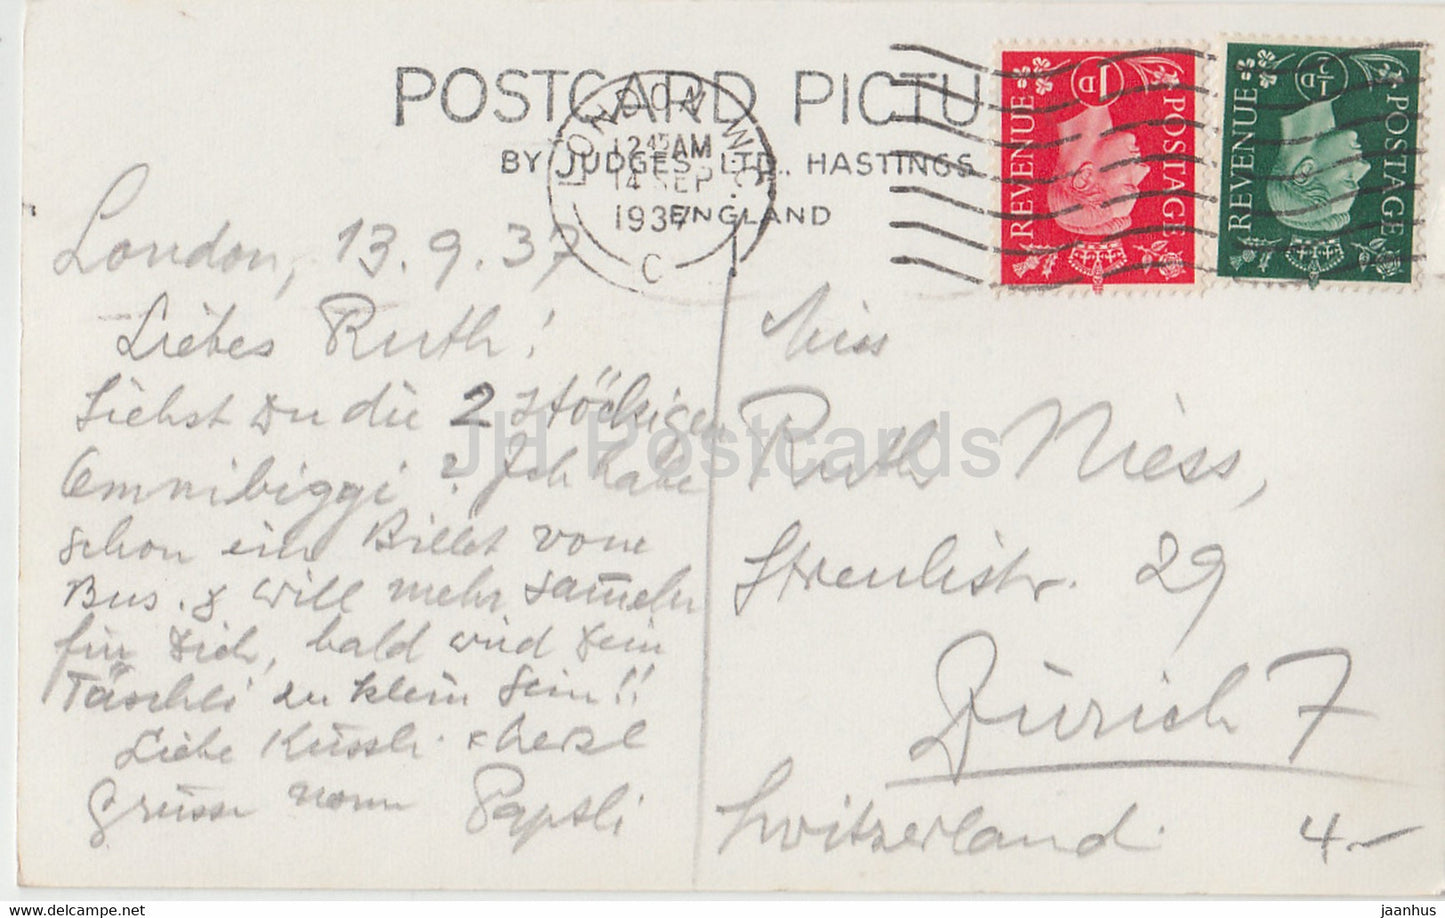 POSTCARD PICTU
BY JUDGES LTD., HASTINGS
ENGLAND
LONDON W.
12 45 AM
14 SEP
1937
C
REVENUE
1D
POSTAGE
REVENUE
½D
POSTAGE
London, 13.9.37
Liebes Ruth!
Siehst Du die 2 stöckigen
Omnibiggi? Ich habe
schon ein Billet vom
Bus. & will mehr sam̄eln
für Dich, bald wird Dein
Täschli zu klein sein!!
Liebe Küssli & herzl
Grüsse vom Papsli
Miss
Ruth Niess,
Streulistr. 29
Zürich 7
Switzerland.
4.-
JH Postcards
www.delcampe.net
jaanhus